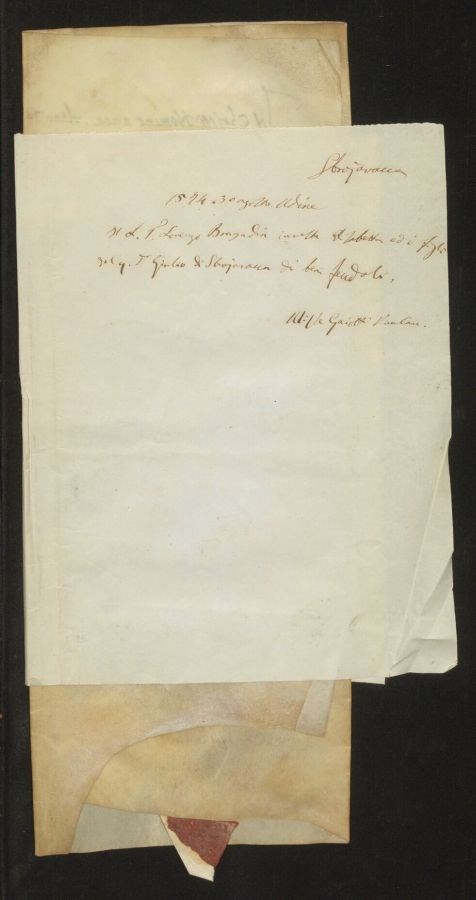 Sbrojavacca
1574 30 agosto Udine
Il L. T. Lorenzo Bragadin investe Elisabetta ed i figli
del q. T. Giulio di Sbrojavacca di beni feudali,